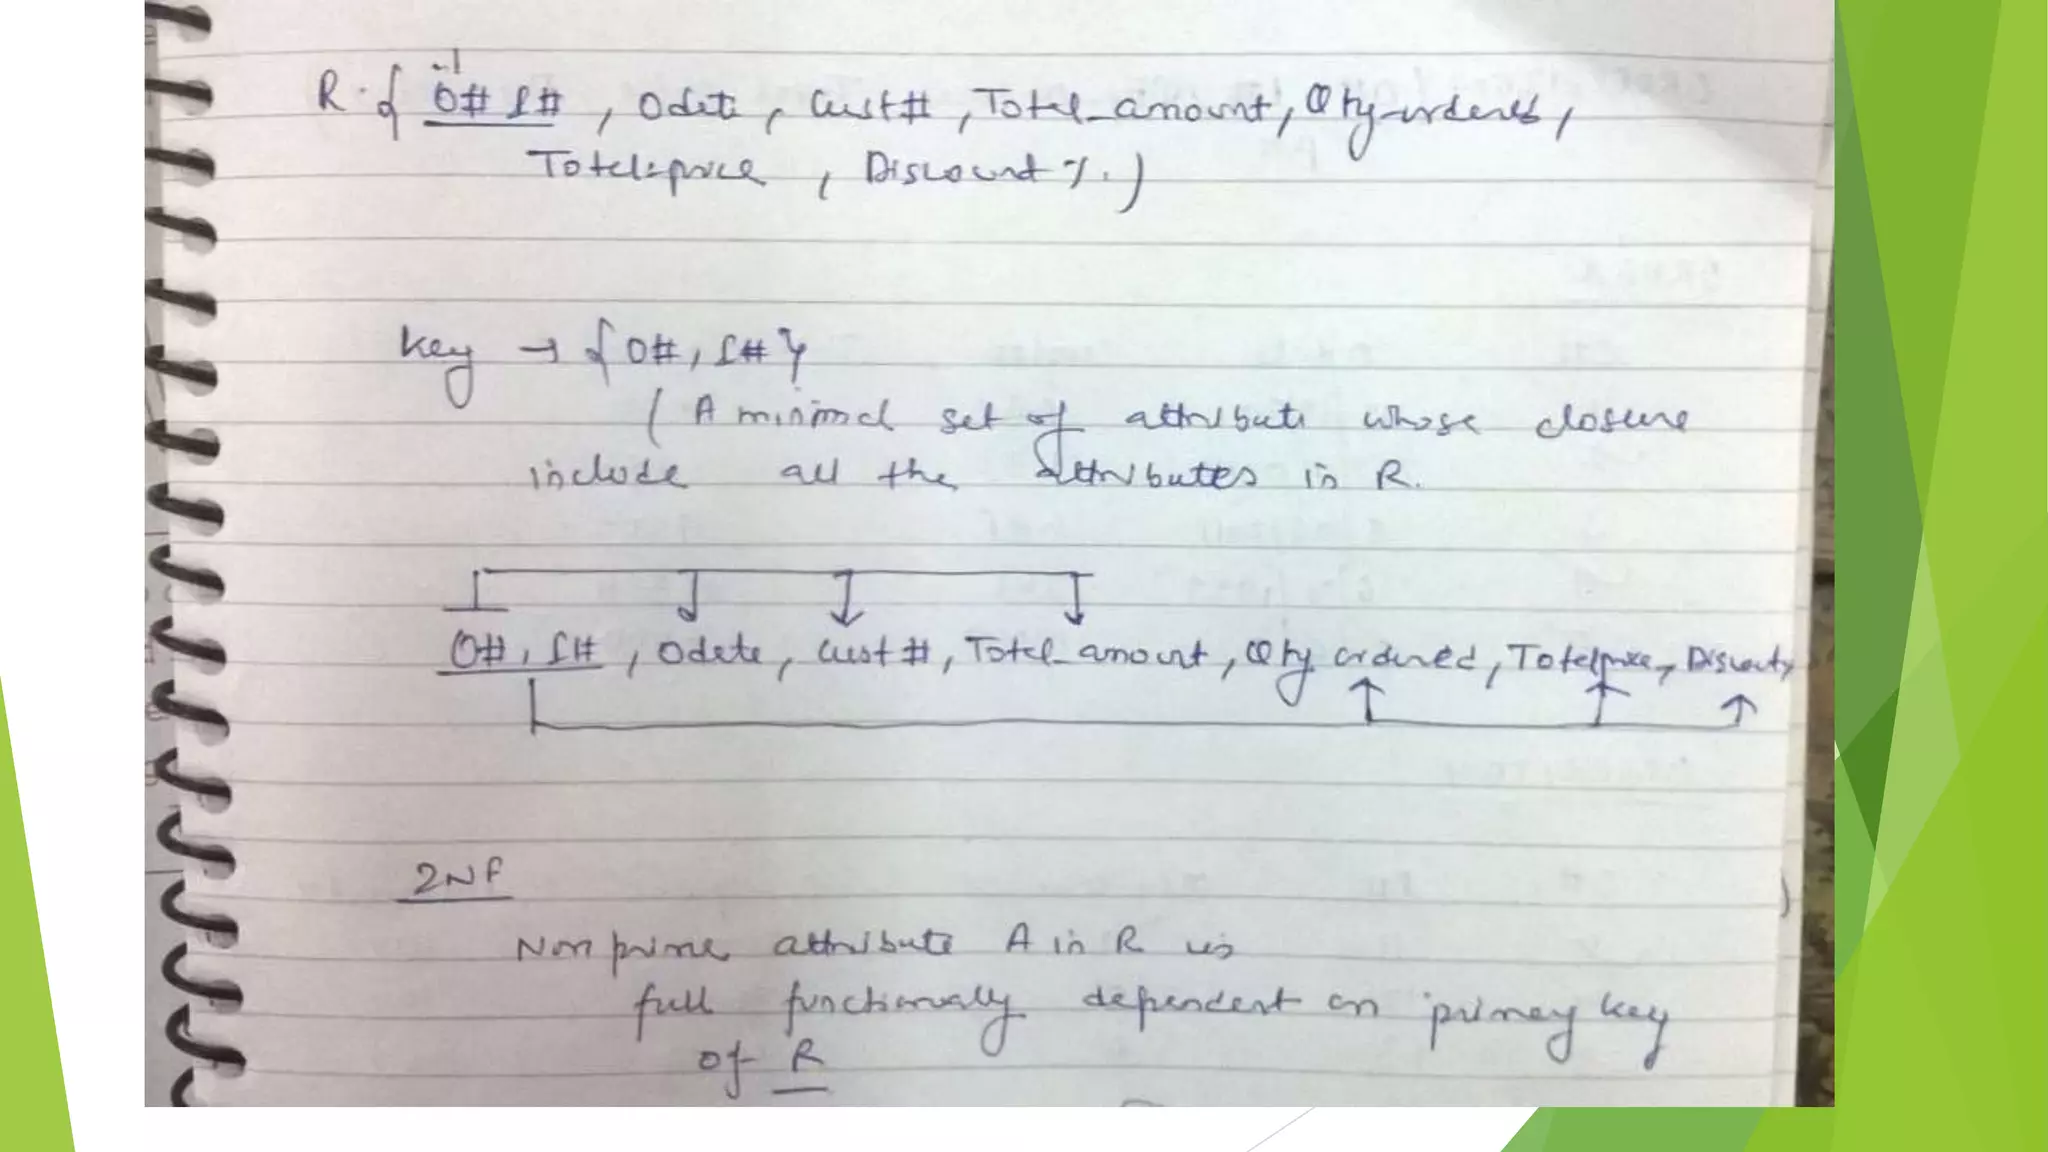 R { O# I# , Odate , Cust# , Total_amount , Qty-ordered ,
Total-price , Discount % . )
key → { O# , I# }
( A minimal set of attribute whose closure
include all the attributes in R.
O# , I# , Odate , Cust # , Total_amount , Qty ordered , Totalprice , Discount%
2NF
Non prime attribute A in R is
full functionally dependent on primary key
of R